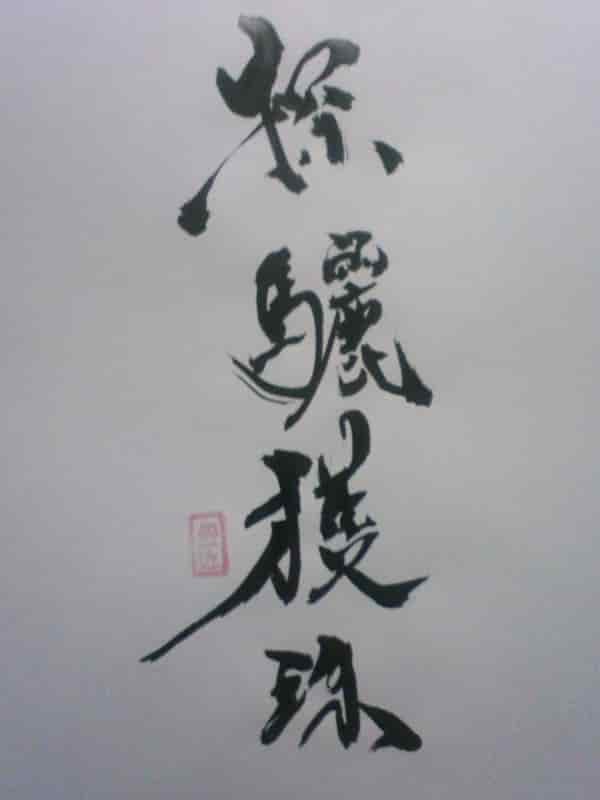 探驪獲珠